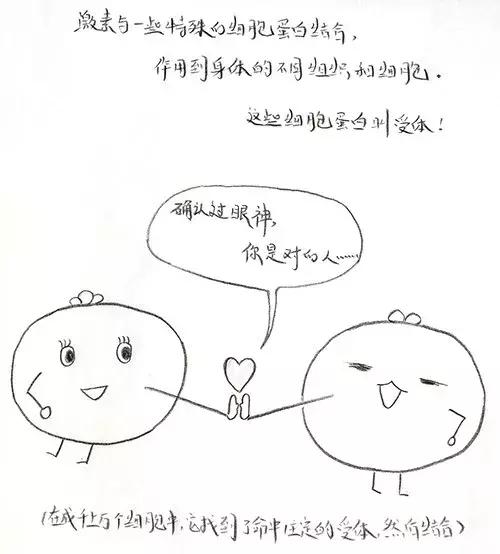 激素与一些特殊的细胞蛋白结合,
作用到身体的不同组织和细胞.
这些细胞蛋白叫受体!
确认过眼神,
你是对的人……
(在成千上万个细胞中,它找到了命中注定的受体,然后结合)